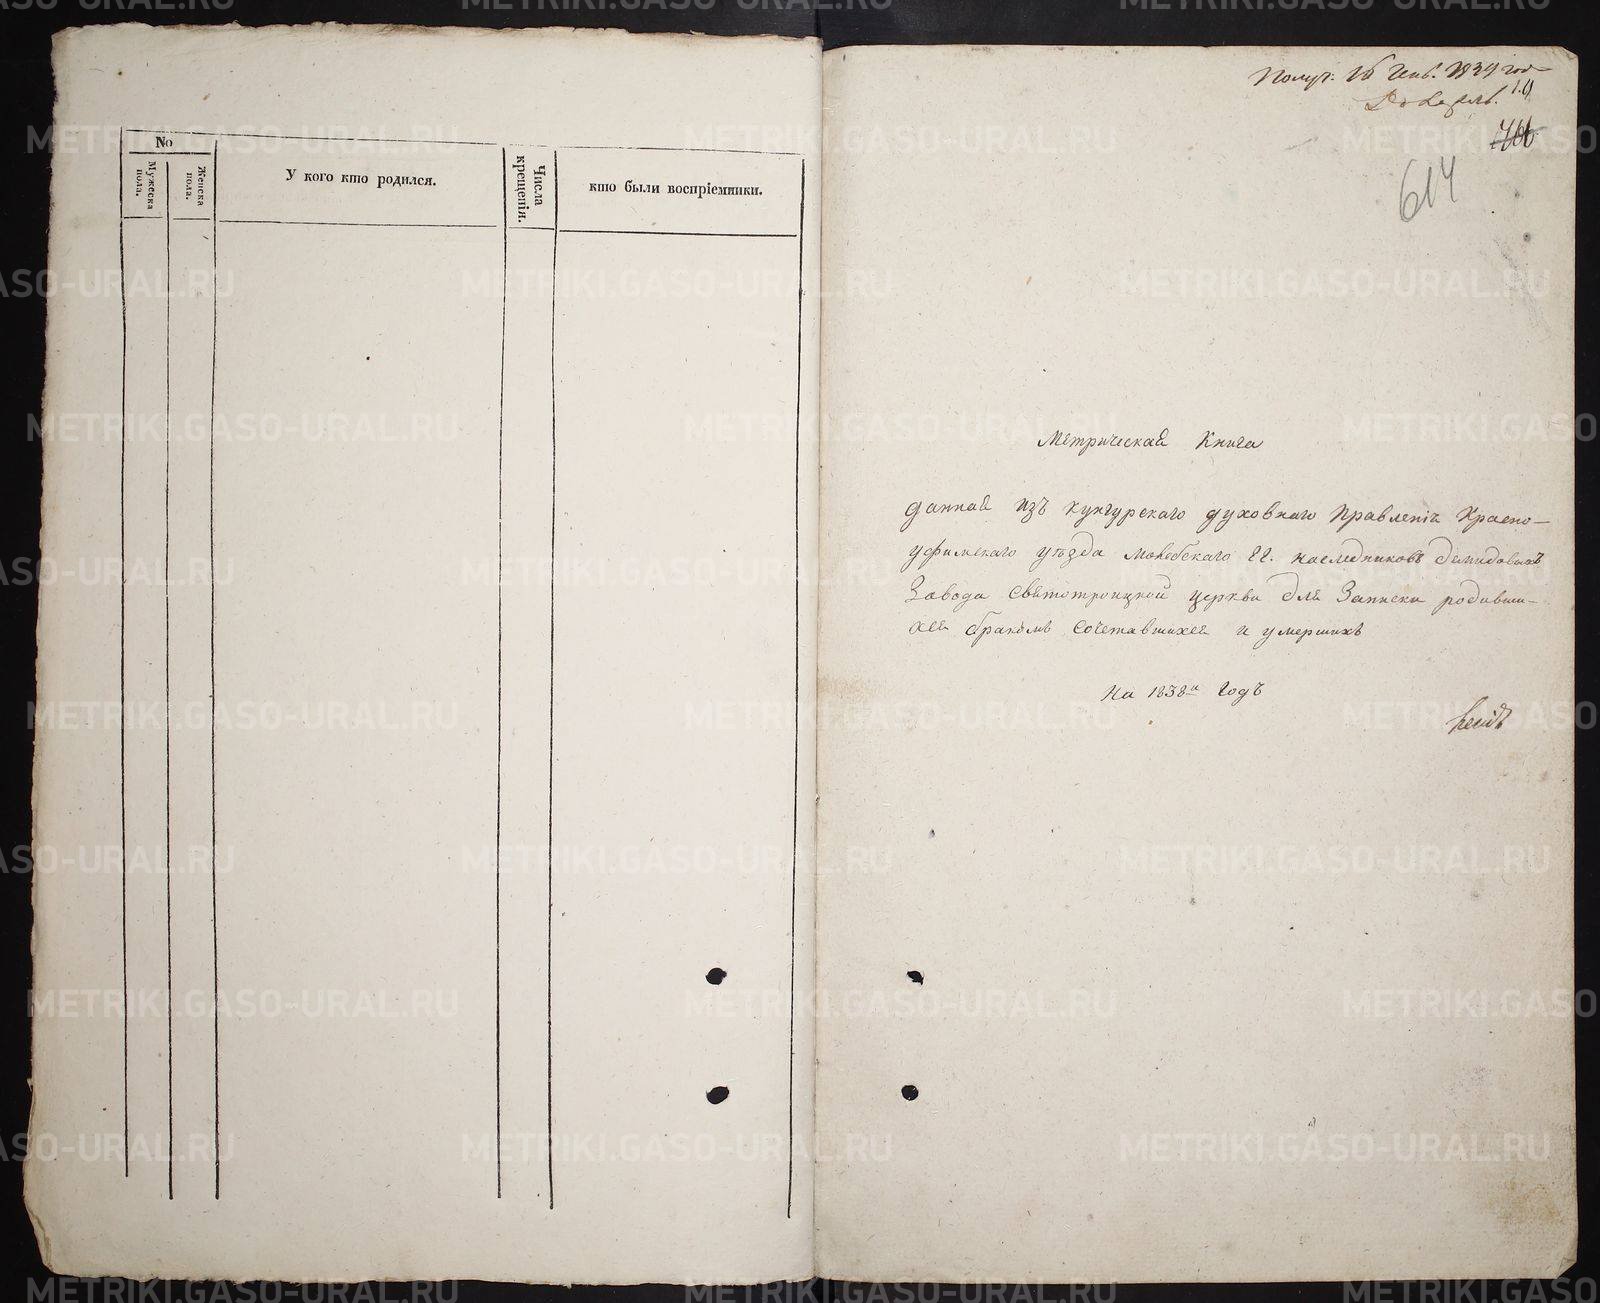 No
Мужеска пола.
Женска пола.
У кого кто родился.
Числа крещенія.
кто были воспріемники.
Получ: 16 Генв. 1839 год
614
Метрическая Книга
данная изъ кунгурскаго духовнаго Правленія Красно-
уфимскаго уѣзда Молебскаго ГГ. наслѣдниковъ Демидовыхъ
Завода Святотроицкой церкви для Записки родивши-
хся бракомъ сочетавшихся и умершихъ
На 1838й Годъ
METRIKI.GASO-URAL.RU